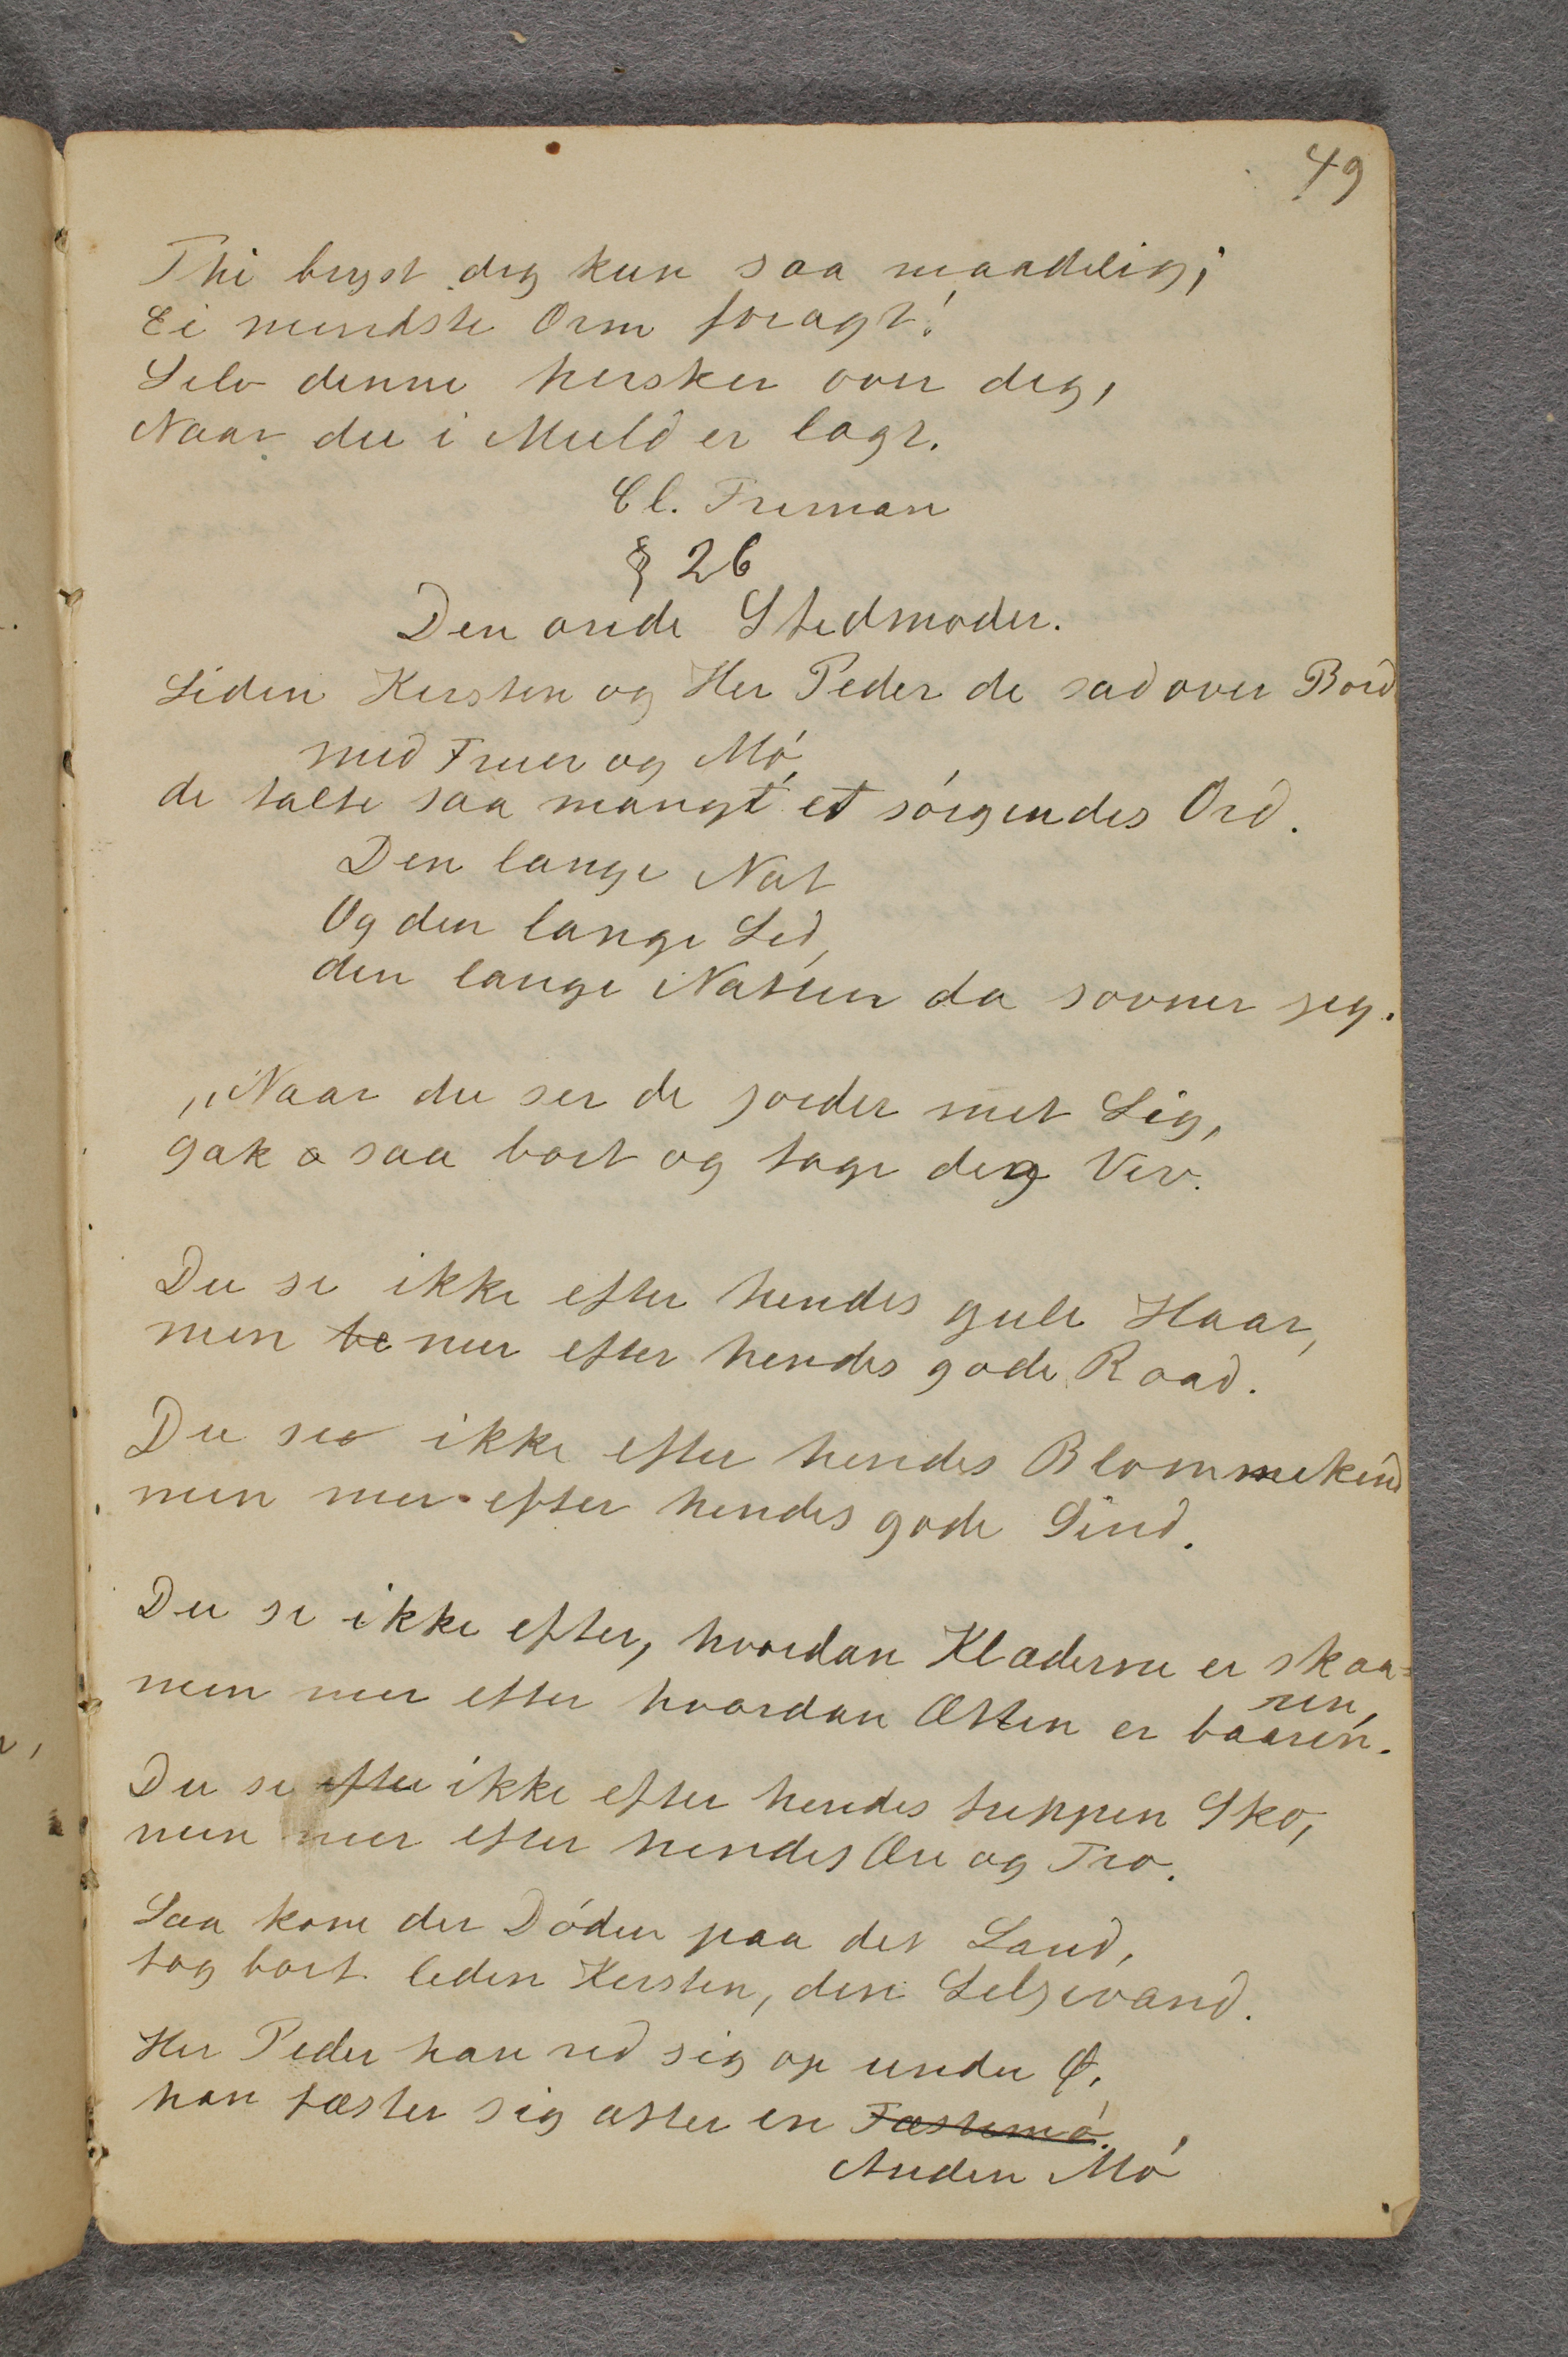 49
Thi bryst dig kun saa maadelig;
Ei mindste Orm foragt!
Selv denne hersker over dig,
Naar du i Muld er lagt.
Cl. Friman
§ 26
Den onde Stedmoder.
Liden Kersten og Her Peder de sad over Bord
med Fruer og Mó,
de talte saa mangt et sórgendes Ord.
Den lange Nat
Og den lange Led,
den lange Natten da sovner jeg.
„Naar du ser de jorder mit Lig,
gak saa bort og tage dig Viv.
Du se ikke efter hendes gule Haar,
men be mer efter hendes gode Raad.
Du se ikke efter hendes Blommekind
men mer efter hendes gode Sind.
Du se ikke efter, hvordan Klæderne er skaa=
ren,
men mer efter hvordan Ætten er baaren.
Du se efter ikke efter hendes tuppen Sko,
men mer efter hendes Ære og Tro.
Saa kom der Dóden paa det Land,
tog bort liden Kersten, den Leljevand.
Her Peder han red sig op under Ø,
han fæster sig atter en Fæstemó.,
Anden Mó